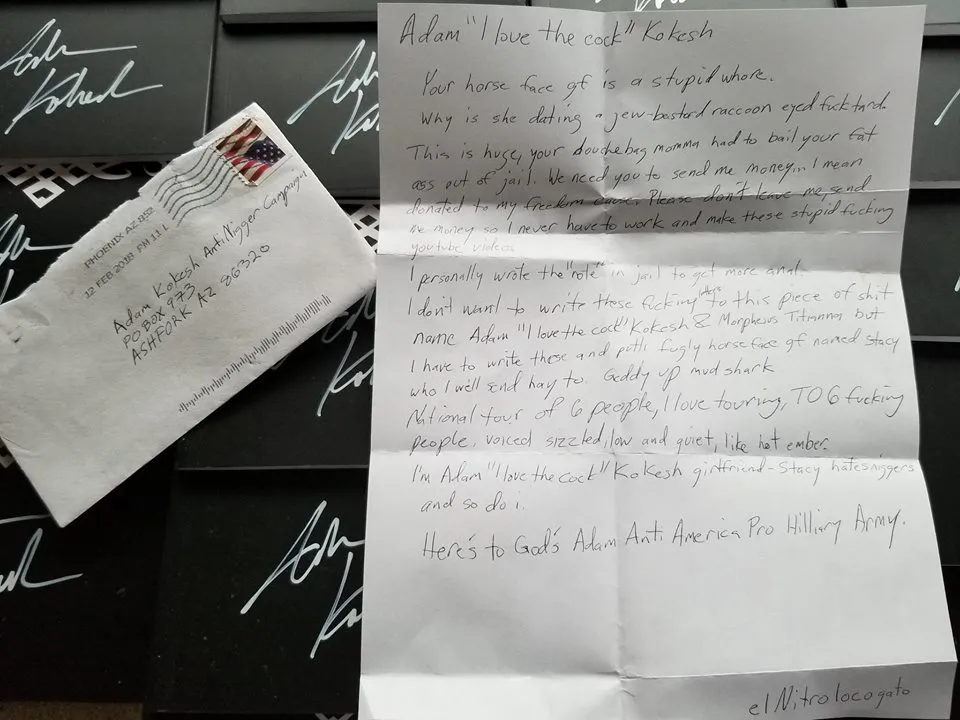 Adam "I love the cock" Kokesh
Your horse face gf is a stupid whore.
Why is she dating a jew-bastard raccoon eyed fucktard.
This is huge, your douchebag momma had to bail your fat
ass out of jail. We need you to send me money... I mean
donated to my freedom cause. Please don't leave me send
me money so I never have to work and make these stupid fucking
youtube videos
I personally wrote the "note" in jail to get more anal.
I don't want to write these fucking letters to this piece of shit
name Adam "I love the cock" Kokesh & Morpheus Titianna but
I have to write these and fugly horse face gf named Stacy
who I will send hay to. Giddy up mud shark
National tour of 6 people, I love touring, TO 6 fucking
people, voiced sizzled, low and quiet, like hot ember.
I'm Adam "I love the cock" Kokesh girlfriend - Stacy hates niggers
and so do i.
Here's to God's Adam Anti America Pro Hilliary Army.
el Nitrolocogato
PHOENIX AZ 852
12 FEB 2018 PM 11 L
Adam Kokesh Anti Nigger Campaign
PO BOX 973
ASHFORK AZ 86320
Adam
Kokesh